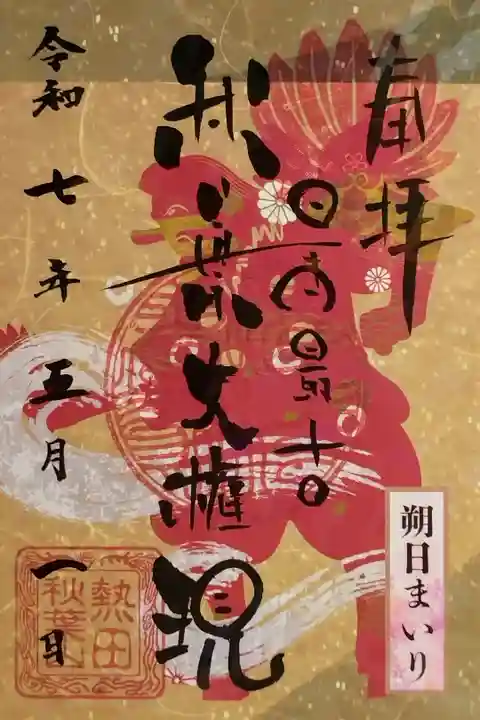 奉拝
日本最古
秋葉大権現
令和七年五月一日
朔日まいり
熱田
秋葉山